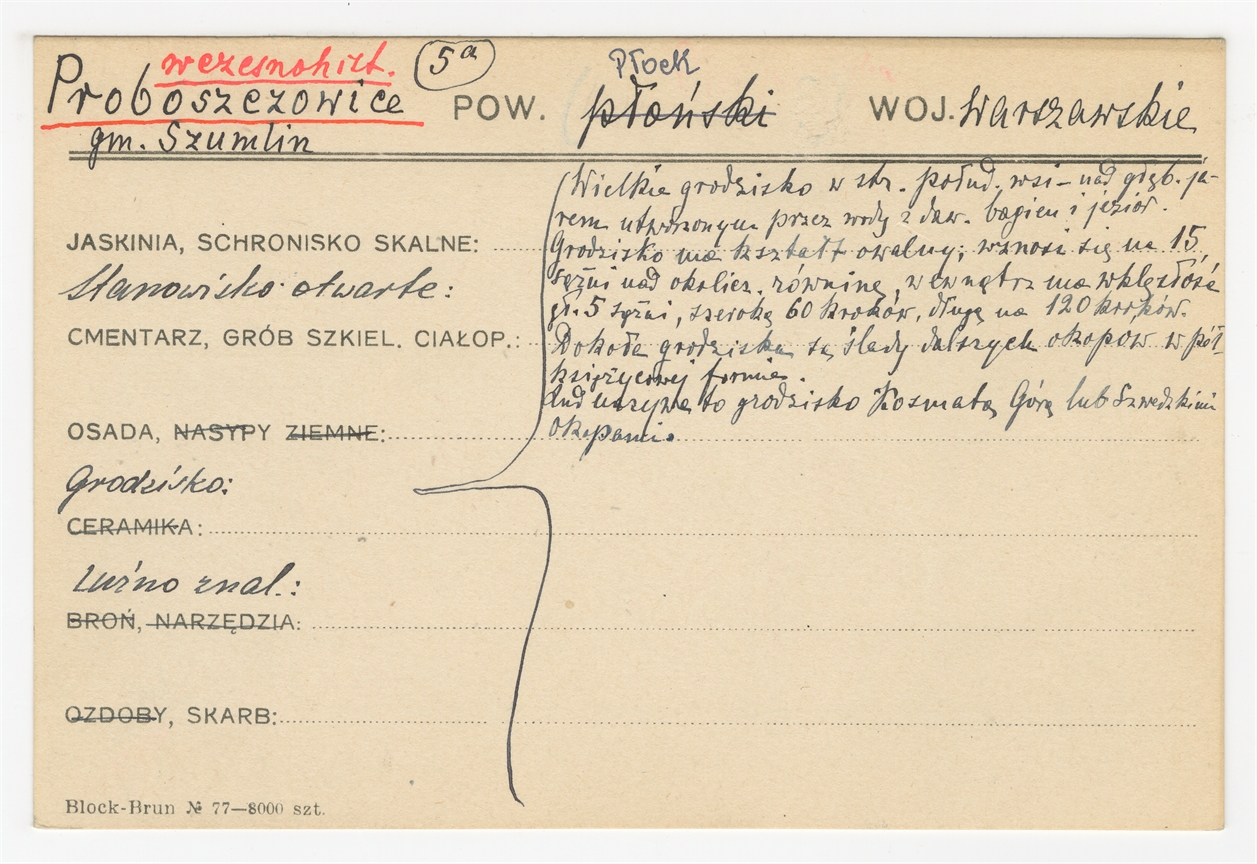 wczesnohist. 5a
Proboszczowice POW. Płock płoński WOJ. Warszawskie
gm. Szumlin
(Wielkie grodzisko w str. połud. wsi – nad głęb. ja-
rem utworzonym przez wody z daw. bagien i jezior.
JASKINIA, SCHRONISKO SKALNE:
Grodzisko ma kształt owalny; wznosi się na 15
Stanowisko otwarte:
sążni nad okolicz. równinę, wewnątrz ma wklęsłość
gł. 5 sążni, szeroką 60 kroków, długą na 120 kroków.
CMENTARZ, GRÓB SZKIEL. CIAŁOP.:
Dokoła grodziska są ślady dalszych okopów w pół-
księżycowej formie.
Lud nazywa to grodzisko Kosmatą Górą lub Szwedzkimi
OSADA, NASYPY ZIEMNE:
okopami.
Grodzisko:
CERAMIKA:
Luźno znal.:
BROŃ, NARZĘDZIA:
OZDOBY, SKARB:
Block-Brun № 77—8000 szt.